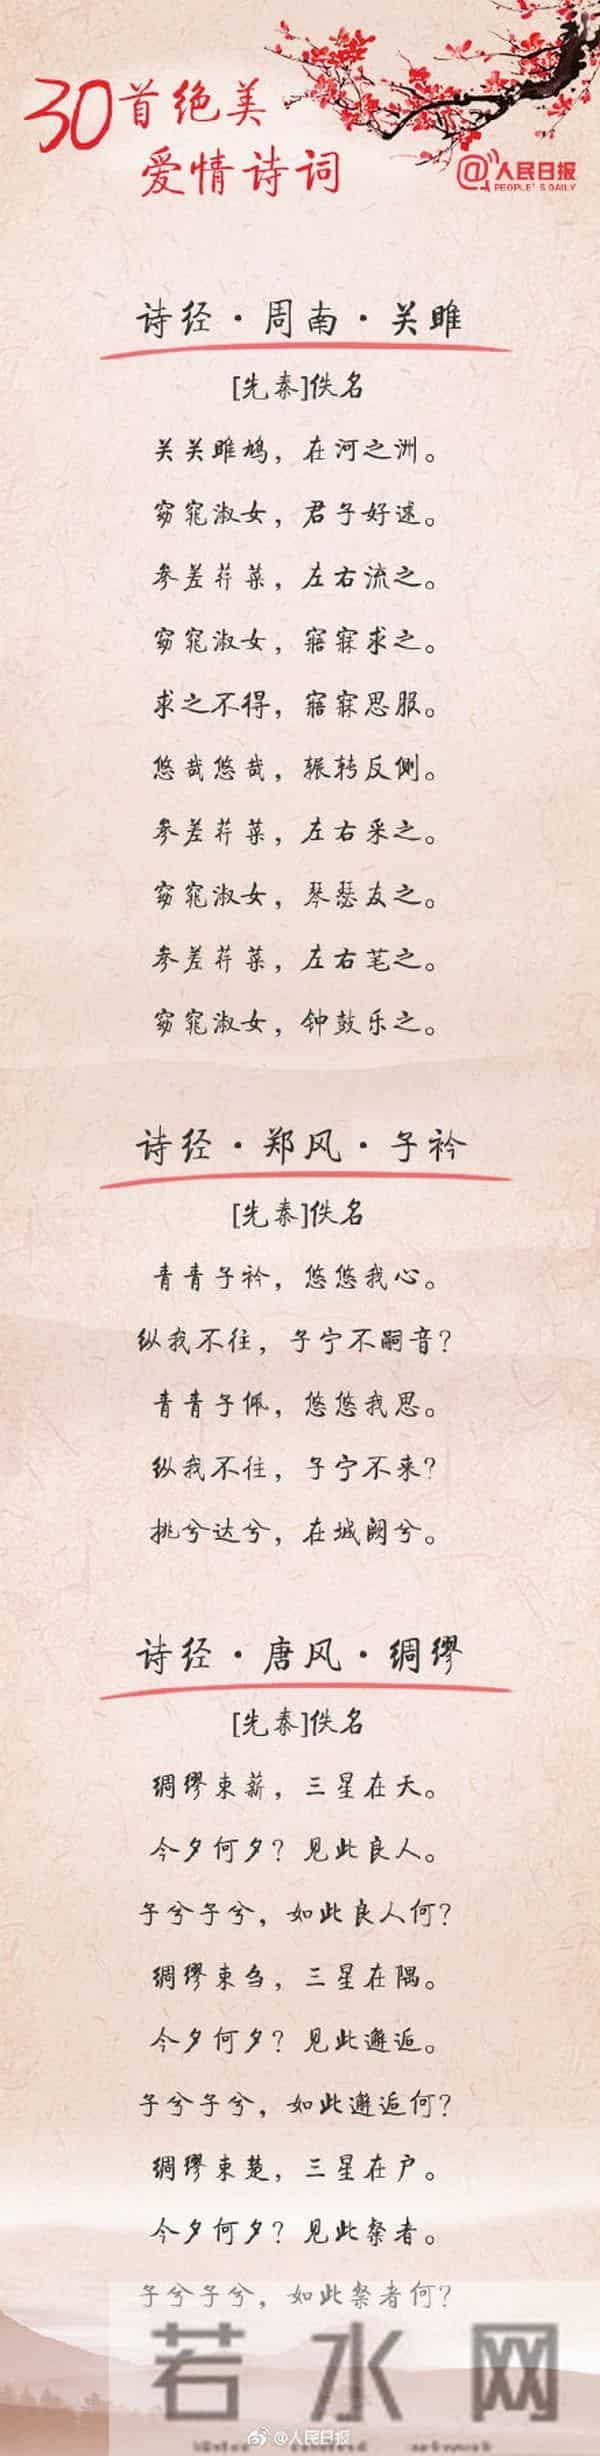 30首绝美
爱情诗词
@人民日报
PEOPLE'S DAILY
诗经·周南·关雎
[先秦]佚名
关关雎鸠，在河之洲。
窈窕淑女，君子好逑。
参差荇菜，左右流之。
窈窕淑女，寤寐求之。
求之不得，寤寐思服。
悠哉悠哉，辗转反侧。
参差荇菜，左右采之。
窈窕淑女，琴瑟友之。
参差荇菜，左右芼之。
窈窕淑女，钟鼓乐之。
诗经·郑风·子衿
[先秦]佚名
青青子衿，悠悠我心。
纵我不往，子宁不嗣音？
青青子佩，悠悠我思。
纵我不往，子宁不来？
挑兮达兮，在城阙兮。
诗经·唐风·绸缪
[先秦]佚名
绸缪束薪，三星在天。
今夕何夕？见此良人。
子兮子兮，如此良人何？
绸缪束刍，三星在隅。
今夕何夕？见此邂逅。
子兮子兮，如此邂逅何？
绸缪束楚，三星在户。
今夕何夕？见此粲者。
子兮子兮，如此粲者何？
若水网
@人民日报